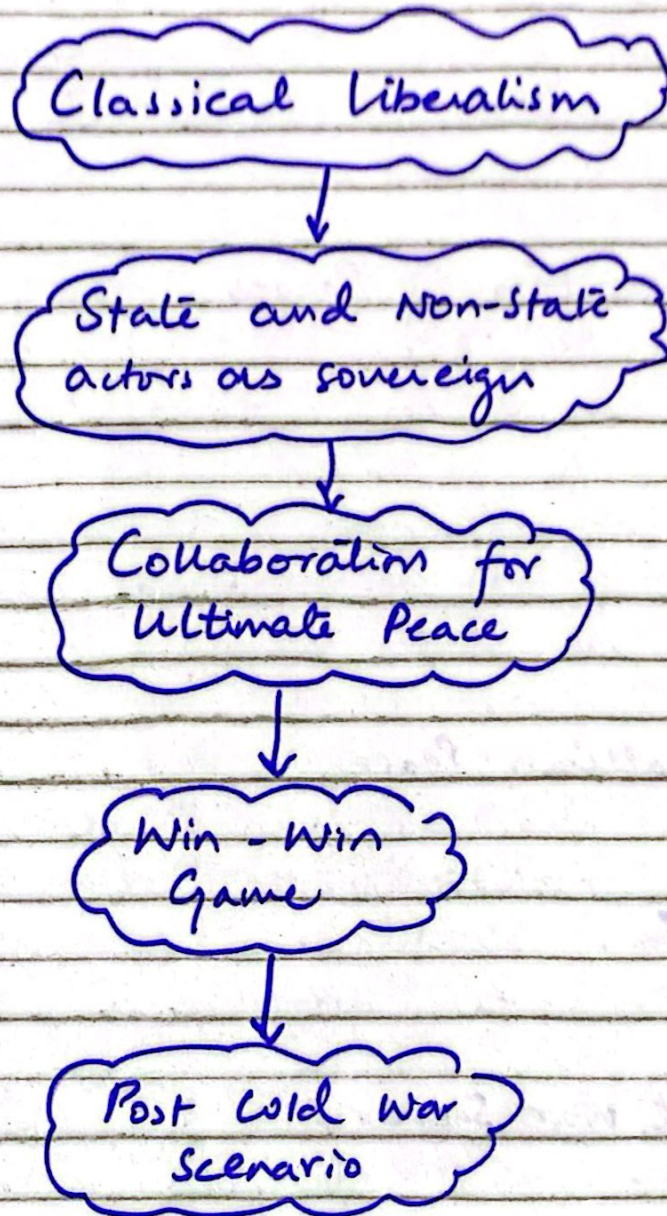 Classical Liberalism
State and Non-State
actors as sovereign
Collaboration for
Ultimate Peace
Win - Win
Game
Post Cold War
scenario